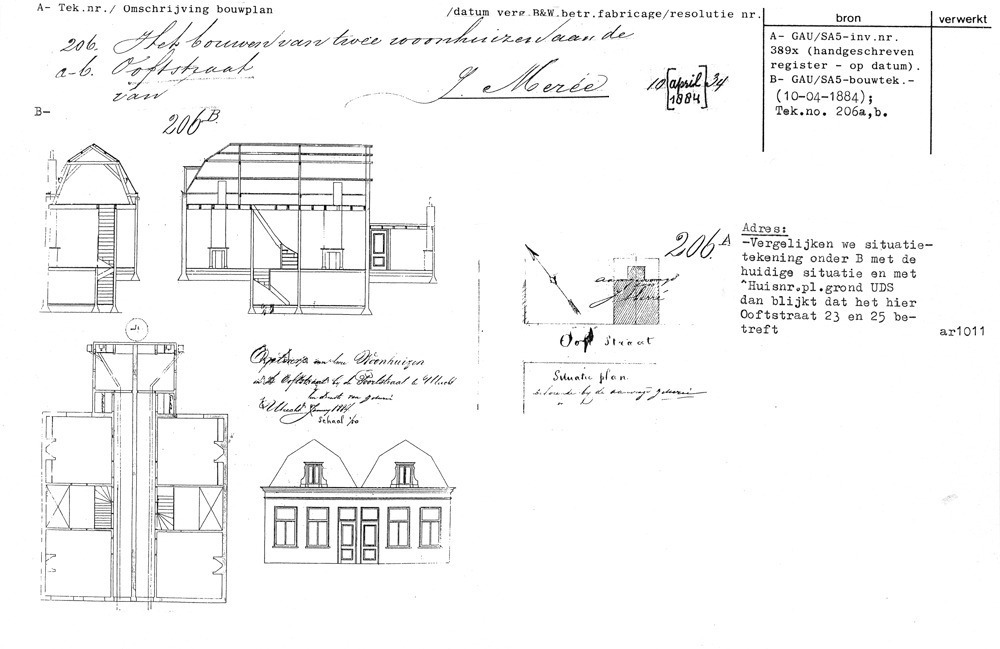 A- Tek.nr./ Omschrijving bouwplan
/datum verg.B&W.betr.fabricage/resolutie nr.
bron
verwerkt
206. Het bouwen van twee woonhuizen aan de
a-b. Ooftstraat
van
J. Merée
10 [april 1884] 34
A- GAU/SA5-inv.nr.
389x (handgeschreven
register - op datum).
B- GAU/SA5-bouwtek.-
(10-04-1884);
Tek.no. 206a,b.
B-
206 B.
206. A
Adres:
-Vergelijken we situatie-
tekening onder B met de
huidige situatie en met
^Huisnr.pl.grond UDS
dan blijkt dat het hier
Ooftstraat 23 en 25 be-
treft
ar1011
Ooft Straat
Situatie plan.
Woonhuizen
Ooftstraat
Utrecht
1884
Schaal